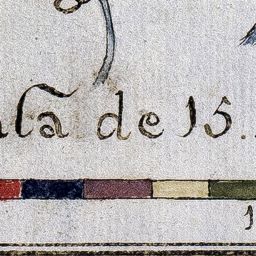 ala de 15.
1